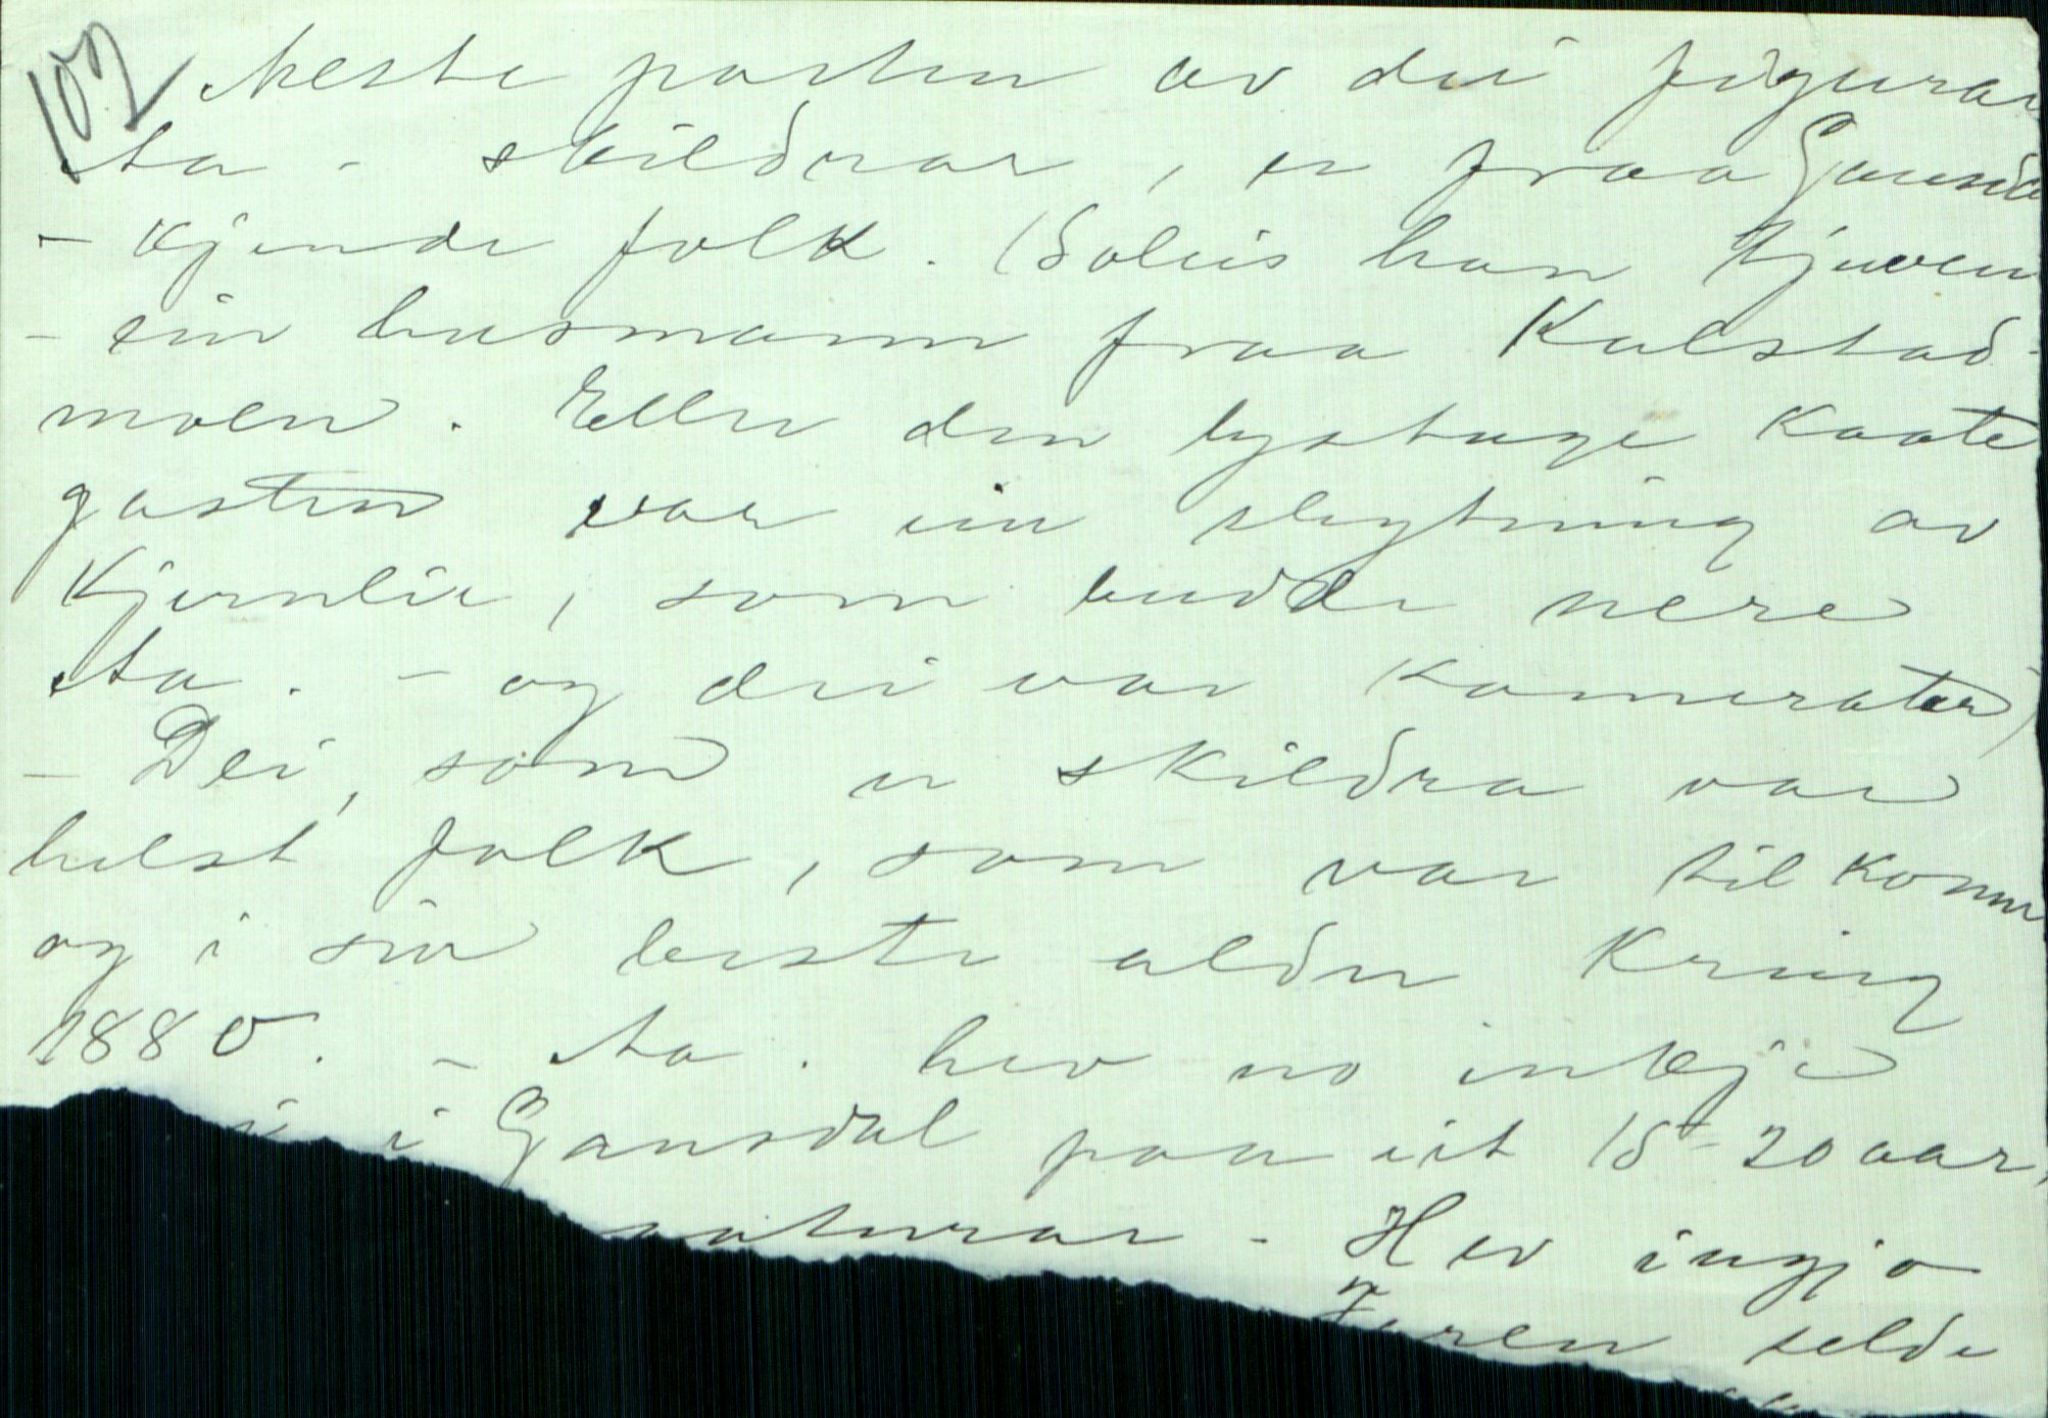 107
Meste parten av dei figurar
Aa - skildrar, er fraa Gausda
- kjende folk. (Soleis han Kjuven
- ein husmann fraa Kalstad-
moen. Eller den lystuge kaate
gasten var ein slegtning av
Kjernlie, som budde nere
Aa. - og dei var kamerater)
- Dei, som er skildra var
helst folk, som var tilkomne
og i sin beste alder kring
1880. - Aa. hev no inkje
i Gausdal paa eit 15-20 aar,
naturar - Hev ingjo
Faren selde